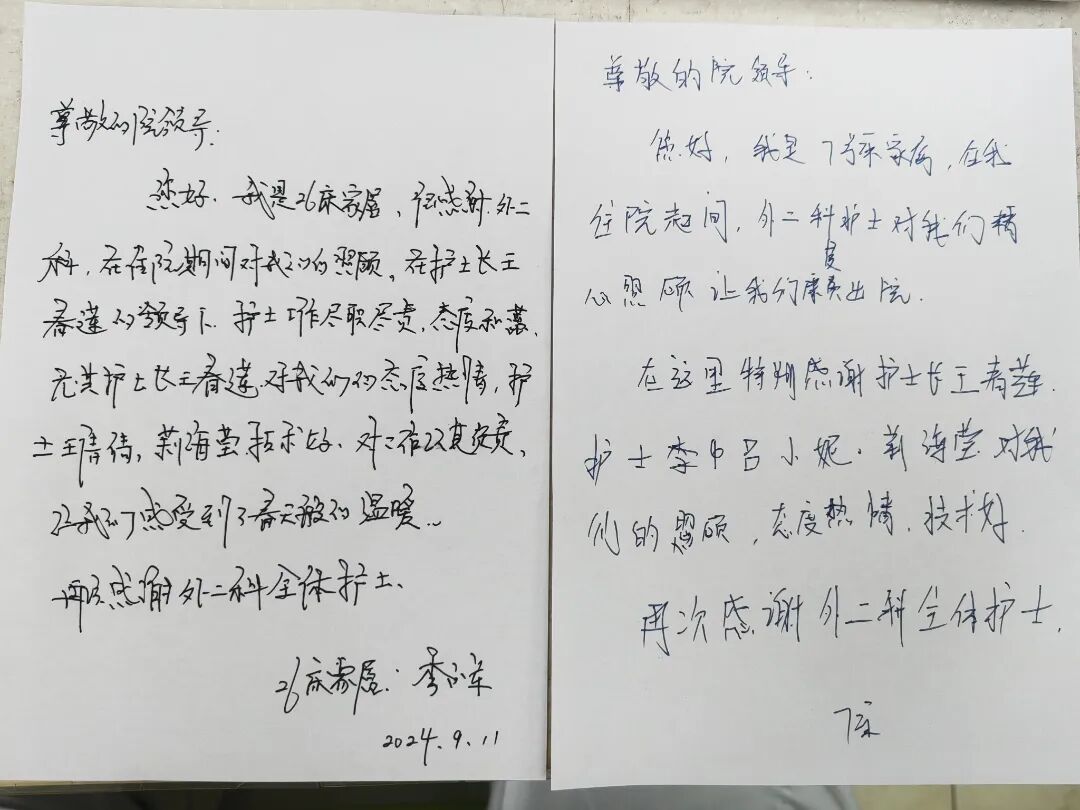 尊敬的院领导:
您好.我是26床家属,很感谢外二
科,在住院期间对我们的照顾,在护士长王
春莲的领导下.护士工作尽职尽责,态度和蔼.
尤其护士长王春莲.对我们的态度热情,护
士王倩倩,荆海莹技术好.对工作认真负责,
让我们感受到了春天般的温暖..
再次感谢外二科全体护士.
26床家属:李
2024.9.11
尊敬的院领导:
您好,我是7号床家属,在我
住院起间,外二科护士对我们精
心照顾让我们康复出院.
在这里特别感谢护士长王春莲.
护士李 吕小妮.荆海莹对我
们的照顾,态度热情.技术好.
再次感谢外二科全体护士.
7床